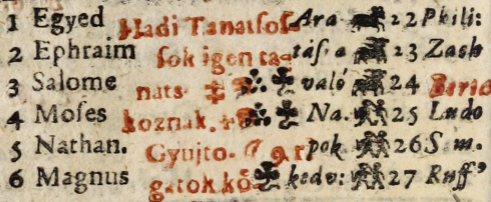 1 Egyed Hadi Tanatsos- Ara 22 Phili:
2 Ephraim sok igen ta- tás, a 23 Zach
3 Salome nats való 24
4 Moses koznak. Na. 25 Ludo
5 Nathan. Gyujto. pok 26 Sam.
6 Magnus gatok kö- kedv: 27 Ruff'